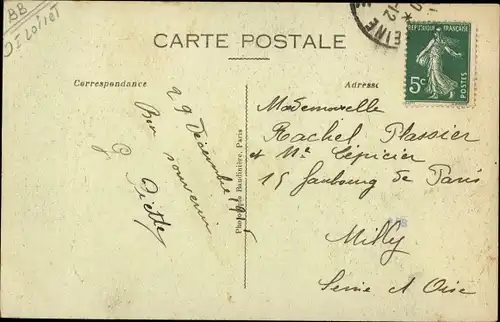 BB
Loiret
CARTE POSTALE
Correspondance
Adresse
RÉPUBLIQUE FRANÇAISE
5c
POSTES
SEINE
29 Décembre
Bon souvenir
Phototypie Baudinière, Paris
Mademoiselle
Rachel Plassier
et Mr Épicier
15 faubourg de Paris
Milly
Seine et Oise